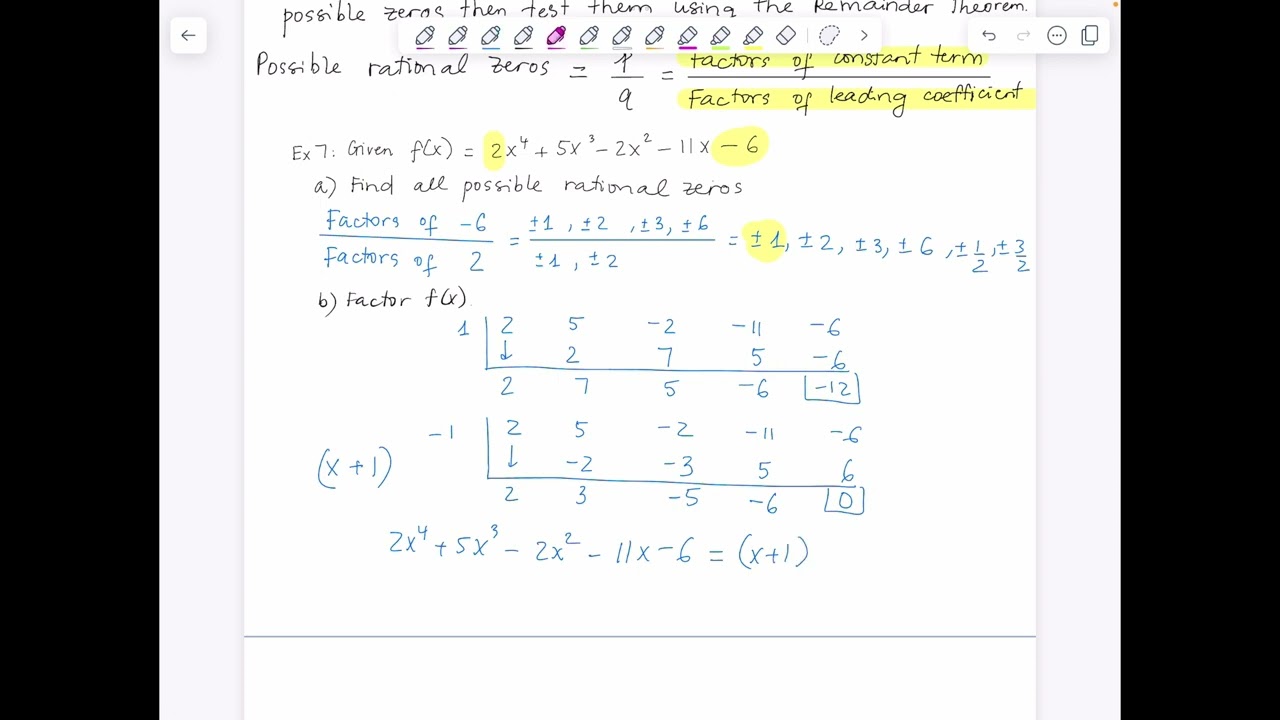 possible zeros then test them using the Remainder Theorem.
Possible rational zeros = p/q = factors of constant term / Factors of leading coefficient
Ex 7: Given f(x) = 2x⁴ + 5x³ - 2x² - 11x - 6
a) Find all possible rational zeros
Factors of -6 / Factors of 2 = ±1, ±2, ±3, ±6 / ±1, ±2 = ±1, ±2, ±3, ±6, ±1/2, ±3/2
b) Factor f(x).
1 | 2 5 -2 -11 -6
↓ 2 7 5 -6
2 7 5 -6 -12
-1 | 2 5 -2 -11 -6
(x+1) ↓ -2 -3 5 6
2 3 -5 -6 0
2x⁴ + 5x³ - 2x² - 11x - 6 = (x+1)